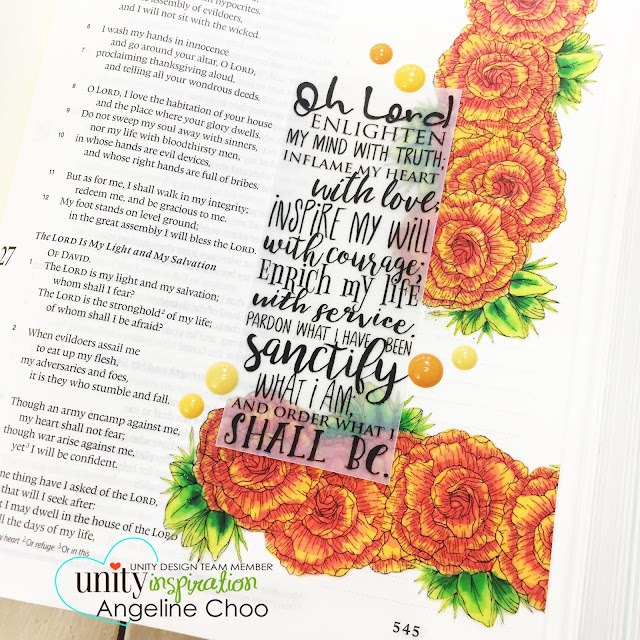 hypocrites.
assembly of evildoers,
and I will not sit with the wicked.
6 I wash my hands in innocence
and go around your altar, O LORD,
7 proclaiming thanksgiving aloud,
and telling all your wondrous deeds.
8 O LORD, I love the habitation of your house
and the place where your glory dwells.
9 Do not sweep my soul away with sinners,
nor my life with bloodthirsty men,
10 in whose hands are evil devices,
and whose right hands are full of bribes.
11 But as for me, I shall walk in my integrity;
redeem me, and be gracious to me.
12 My foot stands on level ground;
in the great assembly I will bless the LORD.
The LORD Is My Light and My Salvation
27 OF DAVID.
1 The LORD is my light and my salvation;
whom shall I fear?
The LORD is the stronghold² of my life;
of whom shall I be afraid?
2 When evildoers assail me
to eat up my flesh,
my adversaries and foes,
it is they who stumble and fall.
Though an army encamp against me,
my heart shall not fear;
though war arise against me,
yet³ I will be confident.
thing have I asked of the LORD,
that will I seek after:
I may dwell in the house of the LORD
the days of my life,
heart ²Or refuge ³Or in this
Oh Lord
ENLIGHTEN
MY MIND WITH TRUTH;
INFLAME MY HEART
with love;
INSPIRE MY WILL
with courage;
ENRICH MY LIFE
with service.
PARDON WHAT I HAVE BEEN
Sanctify
WHAT I AM;
AND ORDER WHAT I
SHALL BE.
545
UNITY DESIGN TEAM MEMBER
unity inspiration
Angeline Choo